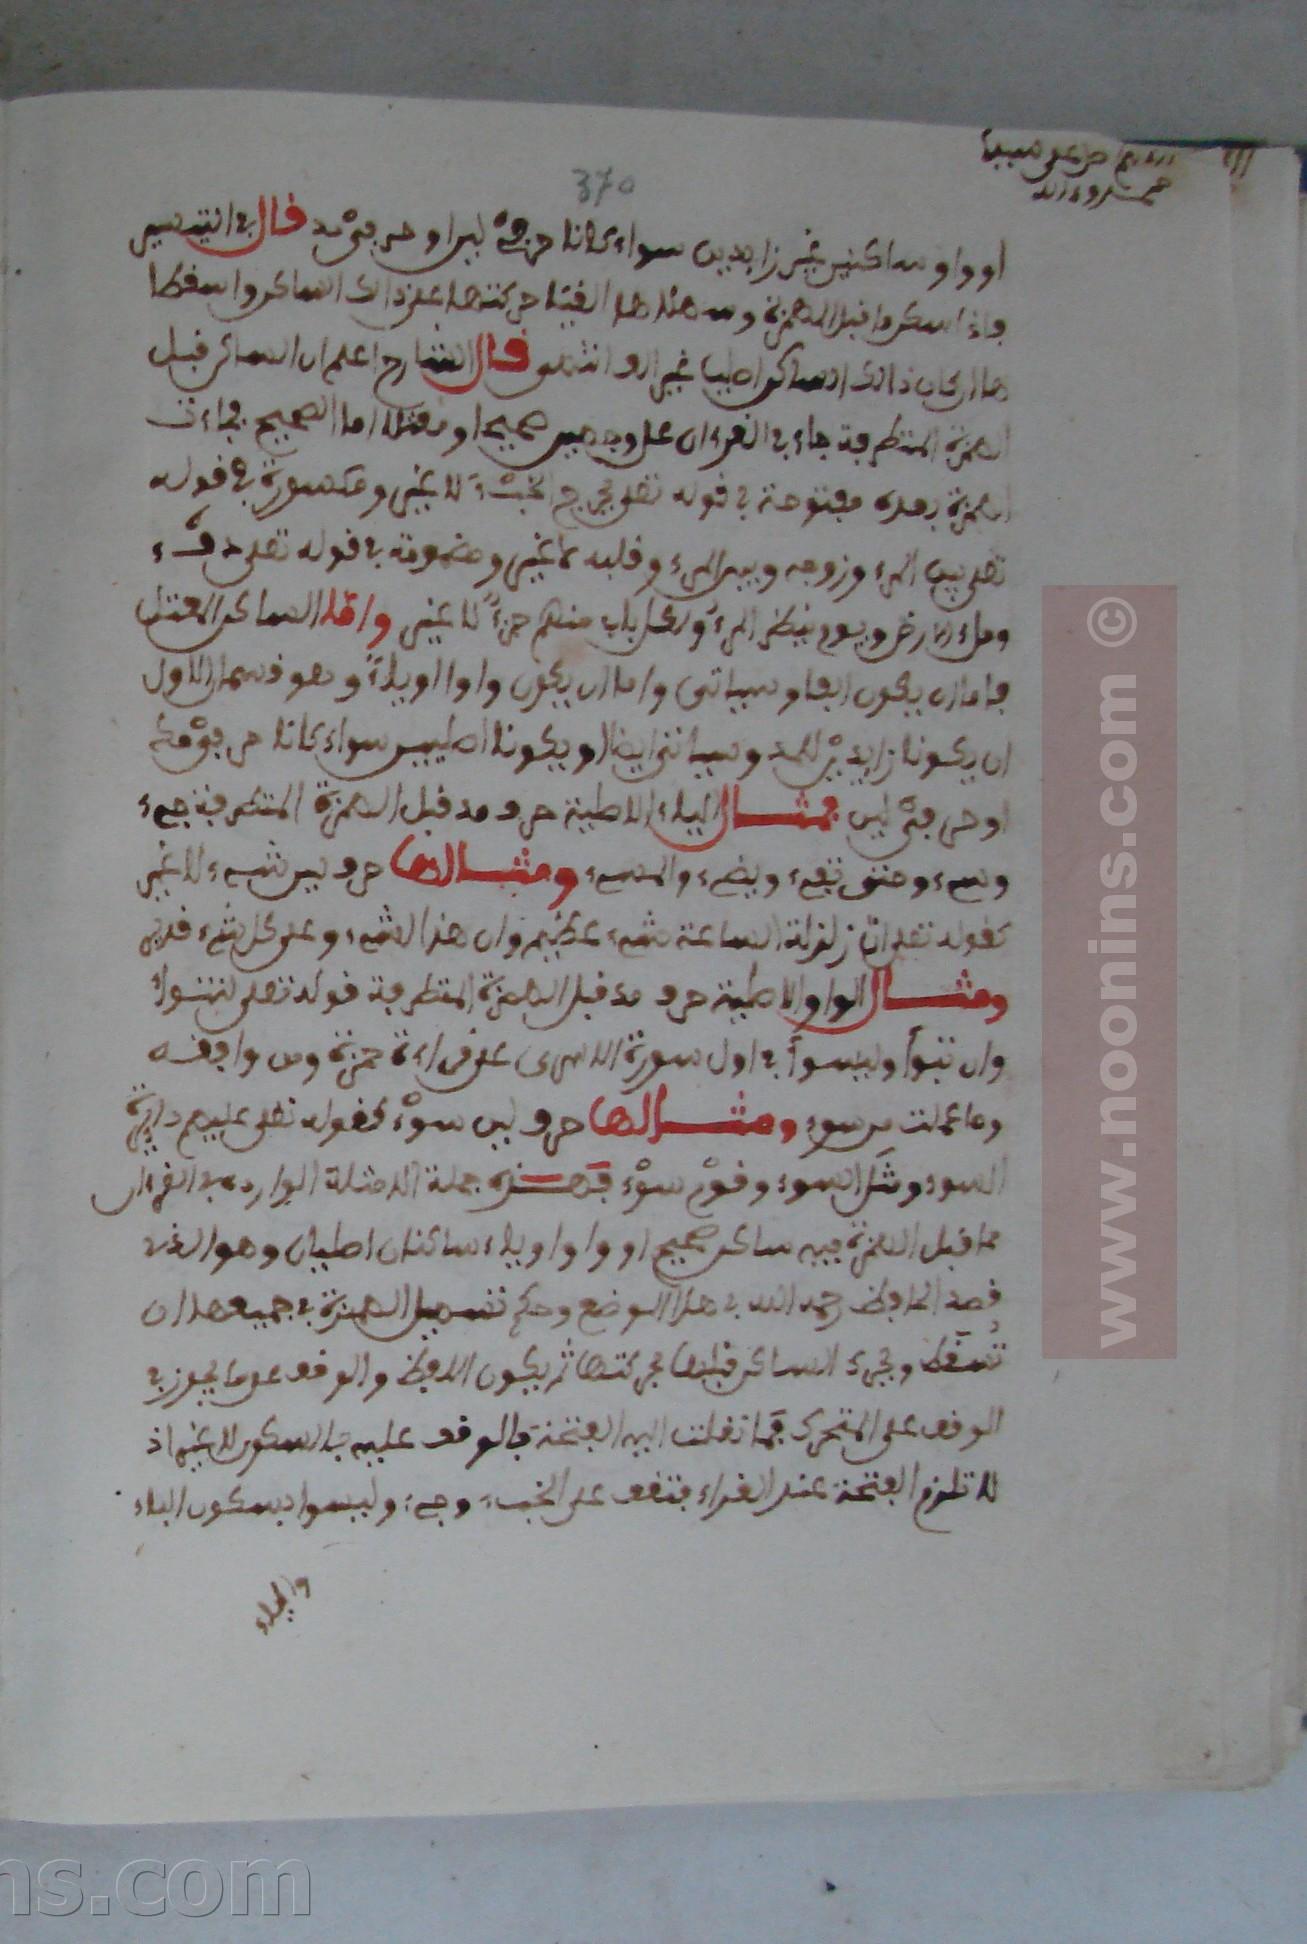 370
او واو ساكنين غير زايدين سواء كانا حرفي لين او حرفي مد قال في التيسير
واذا سكن ما قبل الهمزة وسهلتها القيت حركتها على ذلك الساكن واسقطتها
ان كان ذلك الساكن اصليا غير الف انتهى قال الشارح اعلم ان الساكن قبل
الهمزة المتطرفة جاء في القرءان على وجهين صحيحا ومعتلا اما الصحيح فجاءت
الهمزة بعده مفتوحة في قوله تعلى يخرج الخبء لا غير ومكسورة في قوله
تعلى بين المرء وزوجه وبين المرء وقلبه لا غير ومضمومة في قوله تعلى دفء
وملء الارض ويوم ينظر المرء ولكل باب منهم جزء لا غير واما الساكن المعتل
فاما ان يكون الفا وسياتي واما ان يكون واوا او ياء وهو قسمان الاول
ان يكونا زايدين للمد وسياتي ايضا او يكونا اصليين سواء كانا حرفي مد
او حرفي لين فمثال الياء الاصلية حرف مد قبل الهمزة المتطرفة جيء
وسيء وحتى تفيء ويضيء والمسيء ومثالها حرف لين شيء لا غير
كقوله تعلى ان زلزلة الساعة شيء عظيم وان هذا لشيء وعلى كل شيء قدير
ومثال الواو الاصلية حرف مد قبل الهمزة المتطرفة قوله تعلى لتنوأ
وان تبوأ وليسوأ في اول سورة الاسرى على قراءة حمزة ومن وافقه
وما عملت من سوء ومثالها حرف لين سوء كقوله تعلى عليهم دايرة
السوء ومثل السوء وقوم سوء فهذه جملة الامثلة الواردة في القرءان
مما قبل الهمزة فيه ساكن صحيح او واو او ياء ساكنان اصليان وهو الذي
قصد الحافظ رحمه الله في هذا الموضع وحكم تسهيل الهمزة في جميعها ان
تسقط ويحرك الساكن قبلها بحركتها ثم يكون اللفظ والوقف على ما يجوز في
الوقف على المتحرك فما نقلت اليه الفتحة فالوقف عليه بالسكون لا غير اذ
لا تلزم الفتحة عند القراء فتقف على الخبء وجيء وليسوا بسكون الباء
والياء
www.noonins.com ©
ns.com